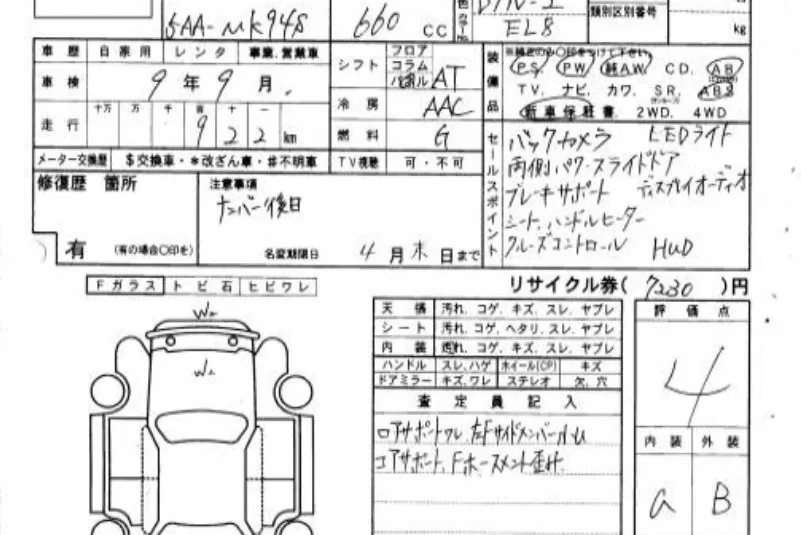 5AA-MK94S
660 CC
類別区別番号
EL8
kg
車歴 自家用 レンタ 事業、営業車
車検 9年9月
走行 十万 万 千 百 十 一
9 2 2 km
メーター交換歴 $交換車・*改ざん車・#不明車
シフト フロア コラム パネル AT
冷房 AAC
燃料 G
TV視聴 可・不可
装備品
PS PW 純AW CD. AB
TV. ナビ. カワ. SR. ABS
新車保証書. 2WD. 4WD
セールスポイント
バックカメラ LEDライト
両側パワースライドドア
ブレーキサポート ディスプレイオーディオ
シート、ハンドルヒーター
クルーズコントロール HUD
修復歴 箇所
有 (有の場合〇印を)
注意事項
ナンバー後日
名変期限日 4月末日まで
リサイクル券( 7230 )円
Fガラス トビ石 ヒビワレ
天張 汚れ. コゲ. キズ. スレ. ヤブレ
シート 汚れ. コゲ. ヘタリ. スレ. ヤブレ
内装 汚れ. コゲ. キズ. スレ. ヤブレ
ハンドル スレ.ハゲ ホイール(CP) キズ
ドアミラー キズ.ワレ ステレオ 欠.穴
査定員記入
ロアサポートワレ
コアサポート、
評価点
4
内装 外装
a B